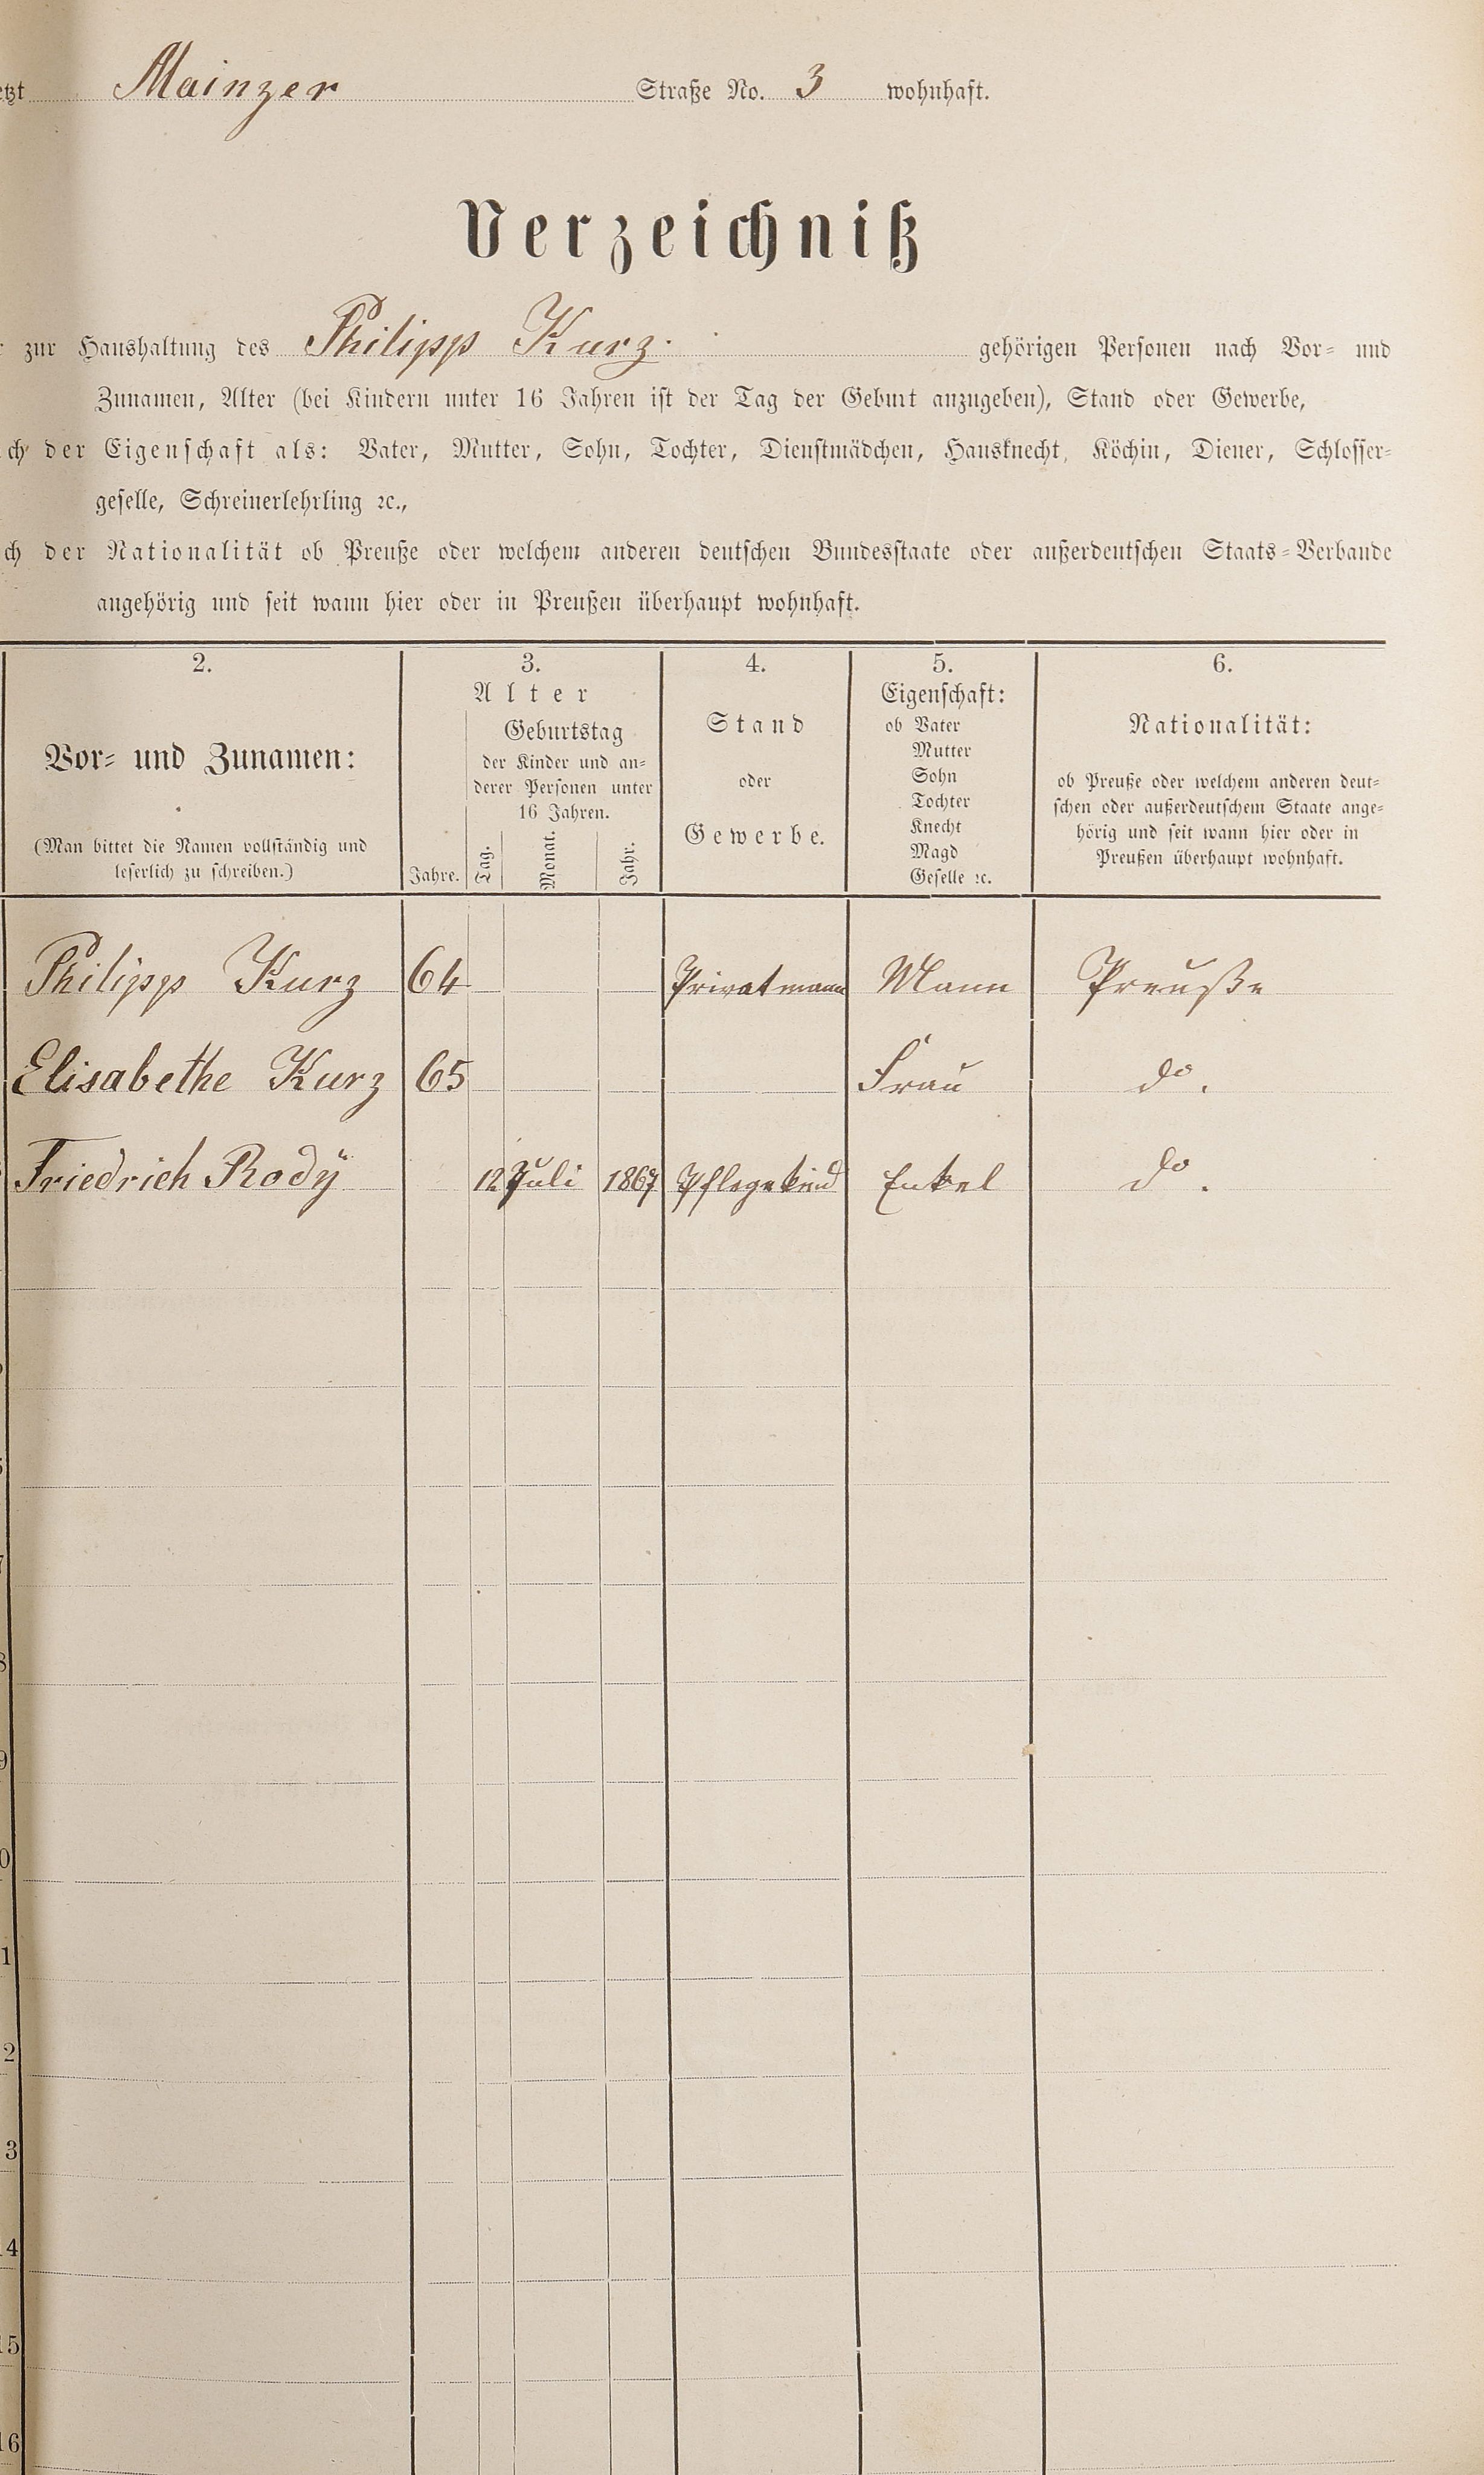 etzt Mainzer Straße No. 3 wohnhaft.
Verzeichniß
r zur Haushaltung des Philipp Kurz. gehörigen Personen nach Vor- und
Zunamen, Alter (bei Kindern unter 16 Jahren ist der Tag der Geburt anzugeben), Stand oder Gewerbe,
ch der Eigenschaft als: Vater, Mutter, Sohn, Tochter, Dienstmädchen, Hausknecht, Köchin, Diener, Schlosser-
geselle, Schreinerlehrling ꝛc.,
ch der Nationalität ob Preuße oder welchem anderen deutschen Bundesstaate oder außerdeutschen Staats-Verbande
angehörig und seit wann hier oder in Preußen überhaupt wohnhaft.
2.
Vor- und Zunamen:
(Man bittet die Namen vollständig und
leserlich zu schreiben.)
3.
Alter
Jahre.
Geburtstag
der Kinder und an-
derer Personen unter
16 Jahren.
Tag.
Monat.
Jahr.
4.
Stand
oder
Gewerbe.
5.
Eigenschaft:
ob Vater
Mutter
Sohn
Tochter
Knecht
Magd
Geselle ꝛc.
6.
Nationalität:
ob Preuße oder welchem anderen deut-
schen oder außerdeutschem Staate ange-
hörig und seit wann hier oder in
Preußen überhaupt wohnhaft.
Philipp Kurz 64 Privatmann Mann Preuße
Elisabethe Kurz 65 Frau do.
Friedrich Rody 12 Juli 1867 Pflegekind Enkel do.
7
8
9
0
1
2
3
14
15
16